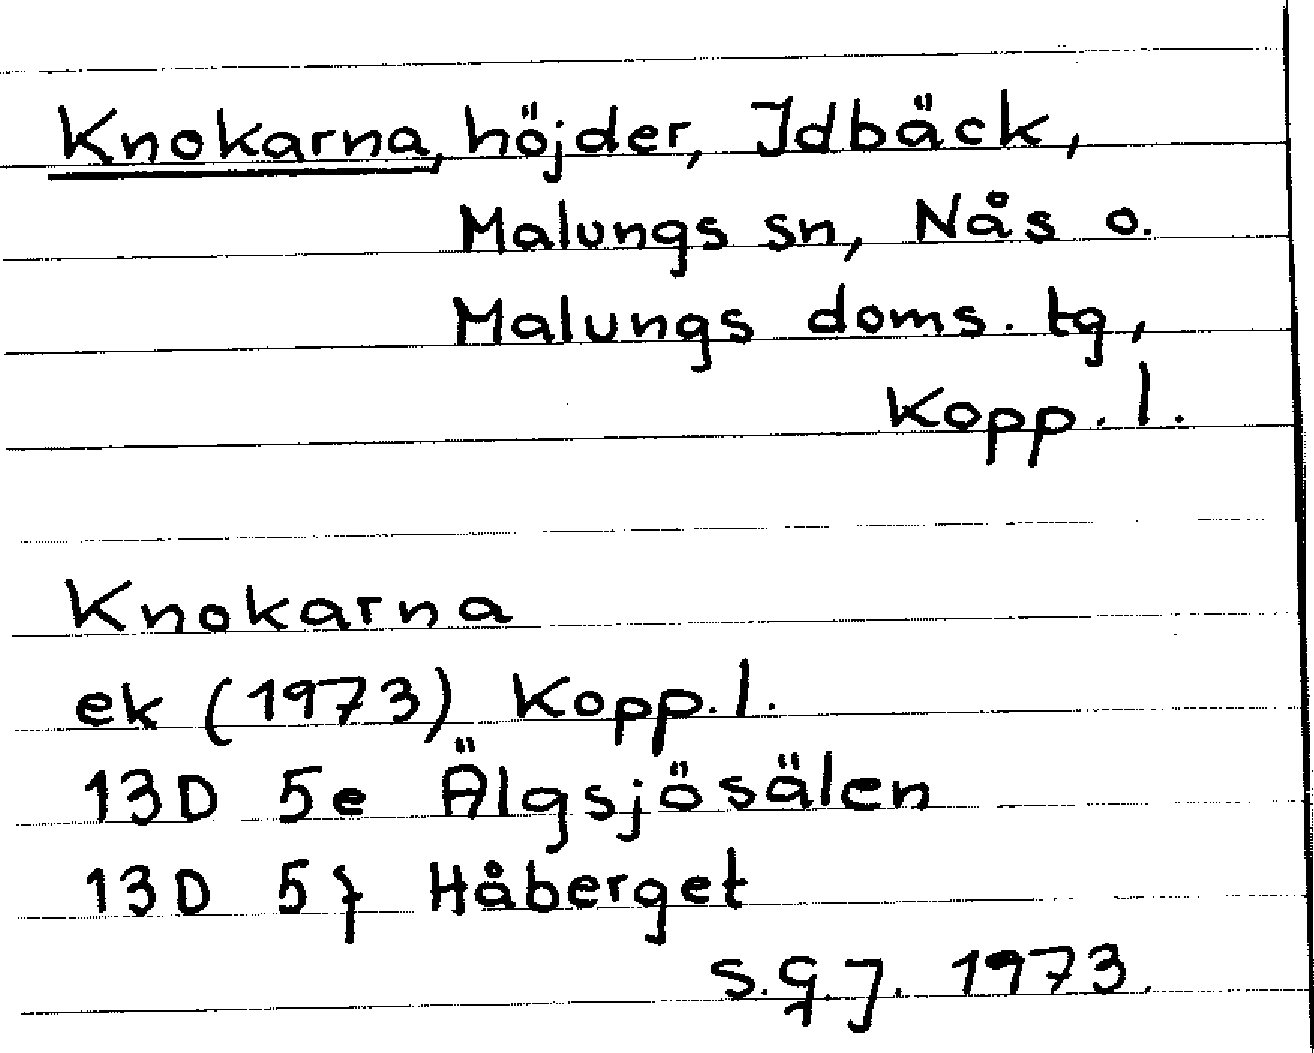 Knokarna, höjder, Idbäck,
Malungs sn, Nås o.
Malungs doms. tg,
Kopp. l.
Knokarna
ek (1973) Kopp. l.
13D 5e Älgsjösälen
13D 5f Håberget
S.G.J. 1973.